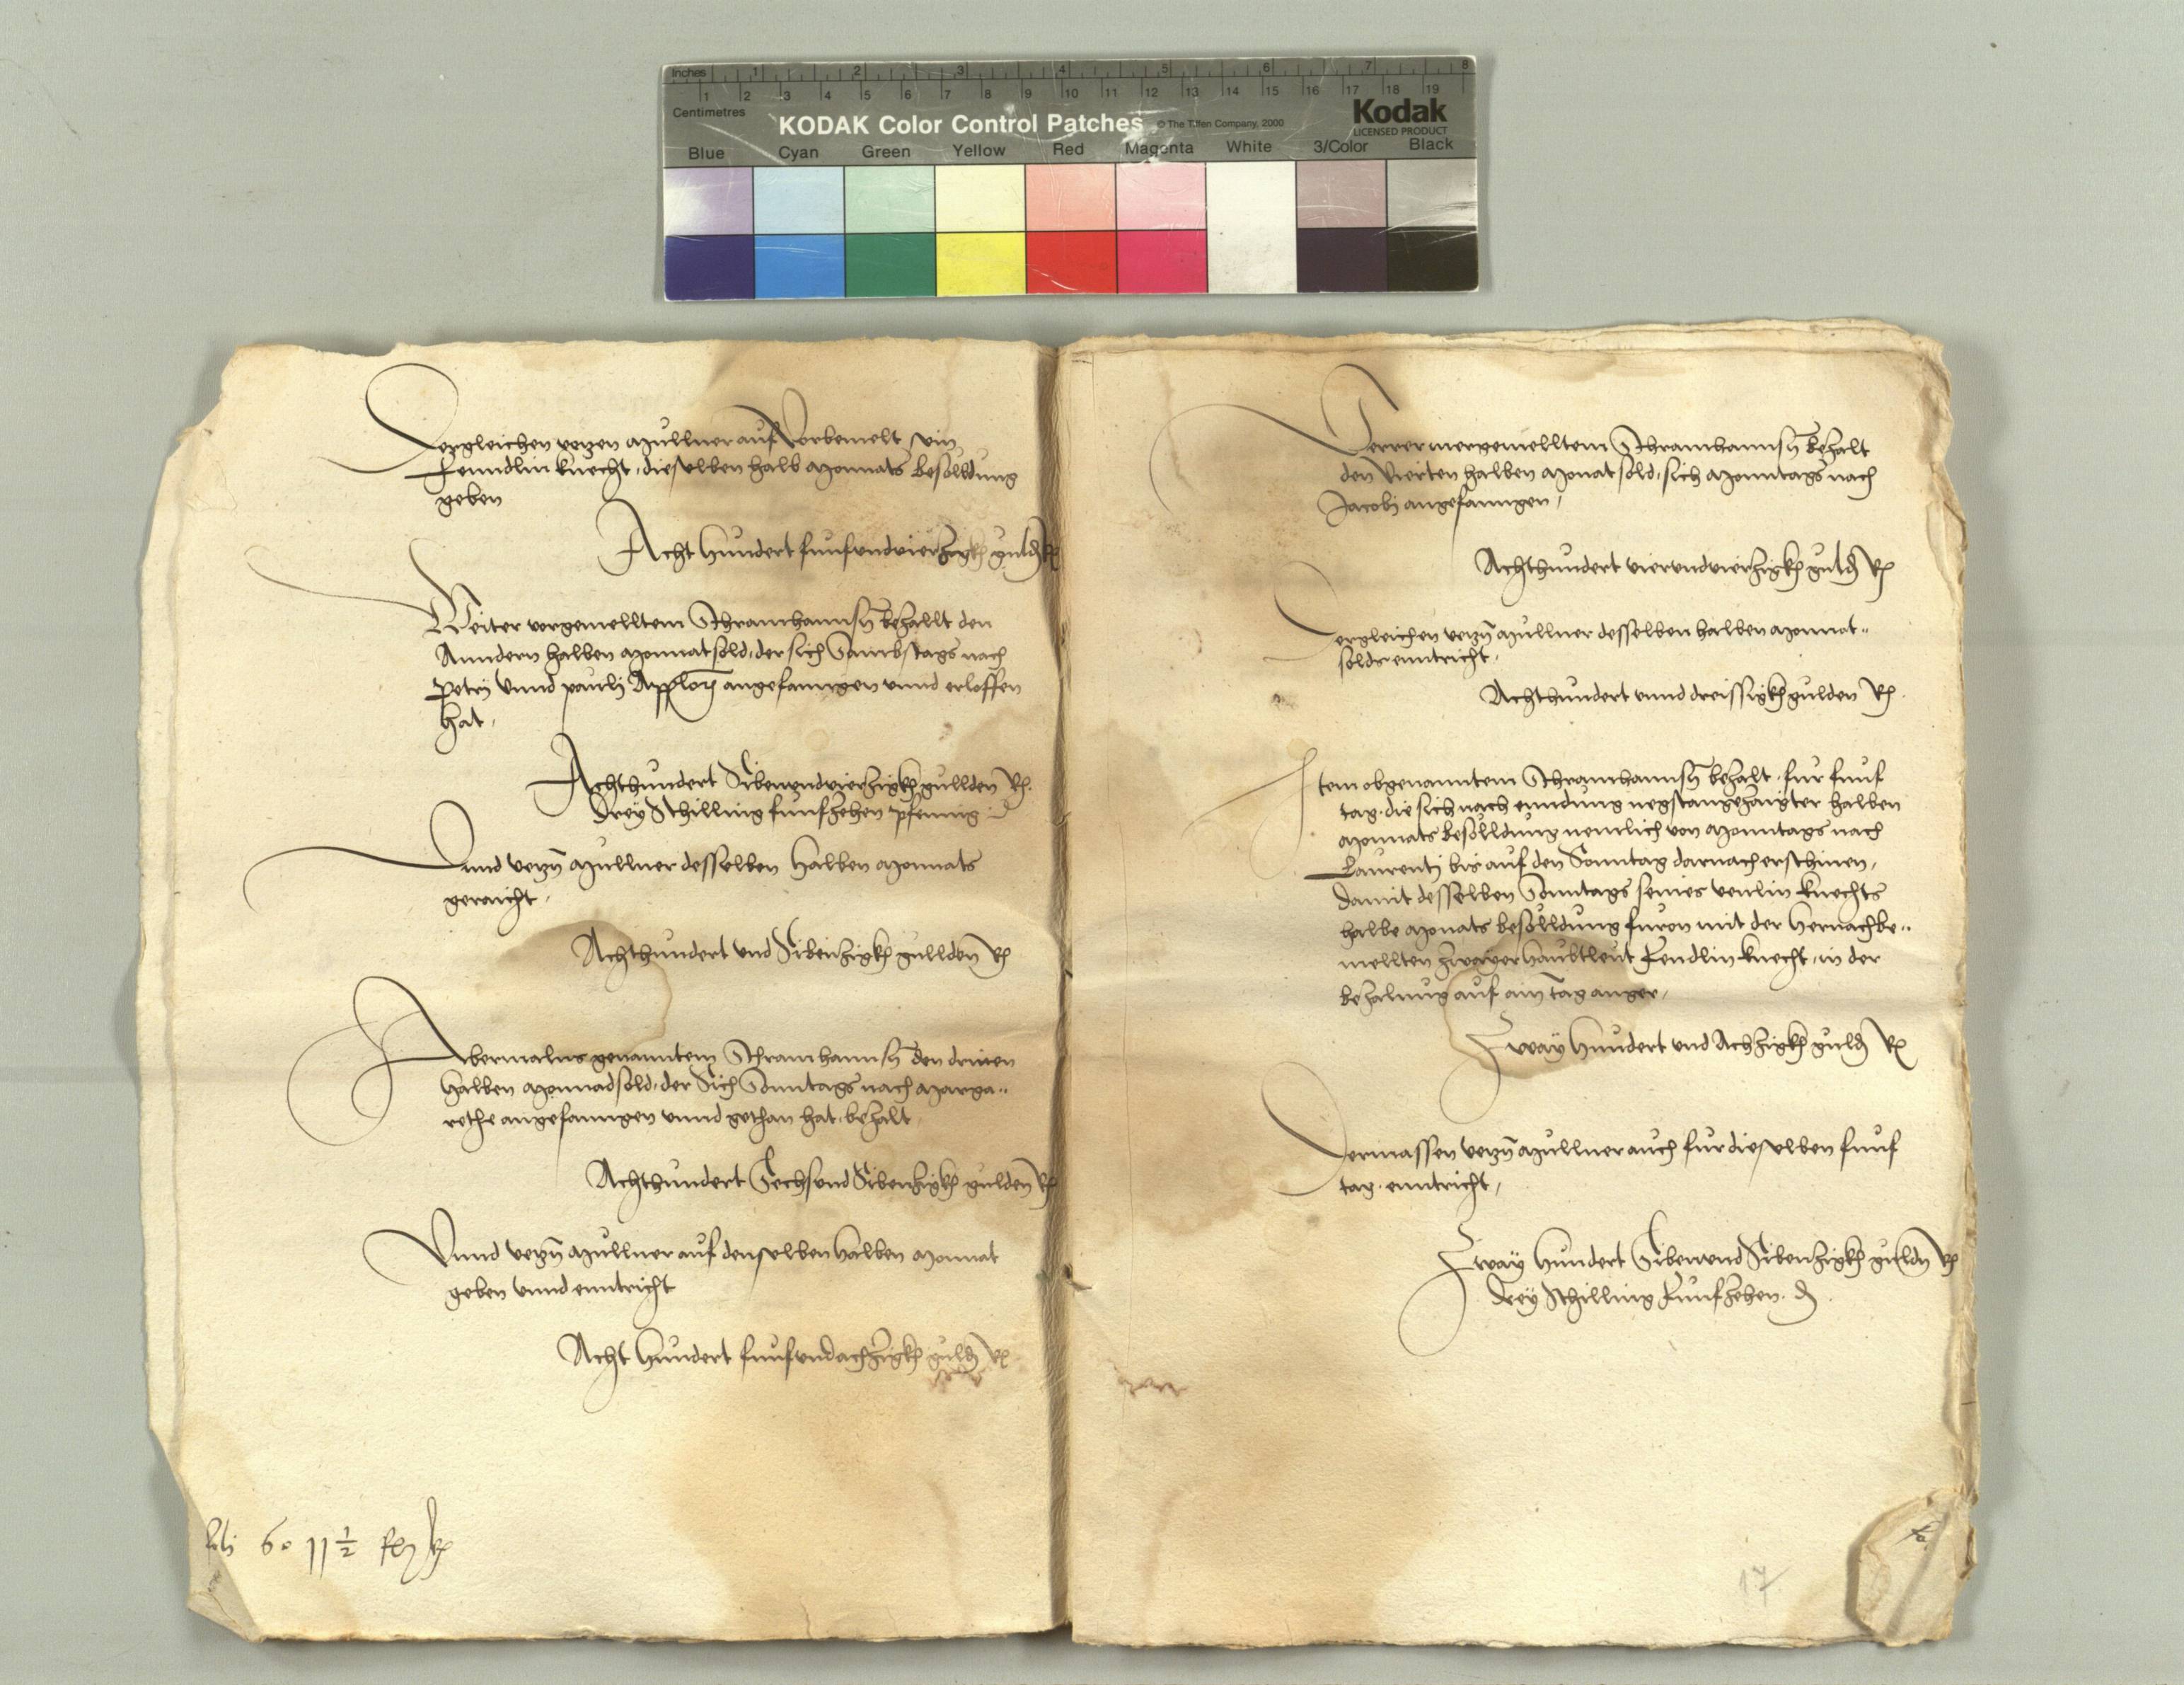 Inches 1 2 3 4 5 6 7 8
1 2 3 4 5 6 7 8 9 10 11 12 13 14 15 16 17 18 19
Centimetres
KODAK Color Control Patches © The Tiffen Company, 2000
Kodak
LICENSED PRODUCT
Blue Cyan Green Yellow Red Magenta White 3/Color Black
Dergleichen Mullner auf vorbemelt sein
Fenndlin knecht, dieselben halb Monnats besoldung
geben
Acht Hundert funfundvierzigk guld R
Weiter vorgemelltem Schramhannsn bezallt den
Anndern halben Monnat sold, der sich Sambstags nach
Petri unnd Pauli Applor angefanngen unnd erloffen
hat,
Achthundert Sibenundvierzigk gullden R
Drey Schilling funfzehen pfenning
Unnd Mullner desselben Halben Monnats
geraicht,
Achthundert und Sibenzigk gullden R
Abermalns genanntem Schramhannsn den driten
Halben Monnadsold, der Sich Sonntags nach Marga„
rethe angefanngen unnd gethan hat, bezalt,
Achthundert Sechsund Sibenzigk gulden R
Unnd Mullner auf denselben Halben Monnat
geben unnd enntricht
Acht Hundert funfundachzigk guld R
60 11 1/2
Ferrer mergemelltem Schramhannsn bezalt
den Vierten halben Monat sold, sich Monntags nach
Jacobi angefanngen,
Achthundert vierundvierzigk guld R
Dergleichen Mullner desselben halben Monnat„
solds enntricht,
Achthundert unnd dreissigk gulden R
Item obgenanntem Schramhannsn bezalt, fur funf
tag, die sich nach enndung negstangezaigter halben
Monnats besolldung nemlich von Monntags nach
Laurentj bis auf den Sonntag darnach erschinen,
damit desselben Sonntags seines venlin knechts
halbe Monats besolldung furon mit der Hernachbe„
mellten zwayer Haubtleut Fendlin knecht, in der
bezalung auf ain tag annger,
Zway Hundert und Achzigk guld R
Dermassen Mullner auch fur dieselben funf
tag, enntricht,
Zway Hundert Sibenund Sibenzigk guldn R
Drey Schilling Funfzehen d
17